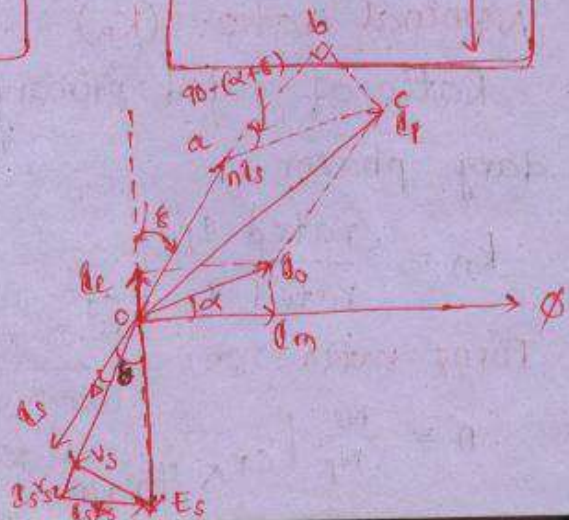 b
90-(α+δ)
c
Ip
a
nIs
δ
Ie
I0
α
o
Im
Φ
θ
Δ
Is
Vs
Isrs
Isxs
Es